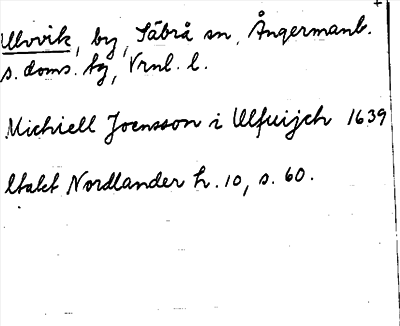 Ulvvik, by, Säbrå sn, Ångermanl.
s. doms. hg, Vrnl. l.
Michiell Joensson i Ulfuijch 1639
Utakt Nordlander h. 10, s. 60.